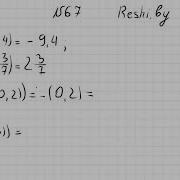 №67 Reshi.by
4) = -9,4;
3/7) = 2 3/7
0,2)) = -(0,2) =
)) =